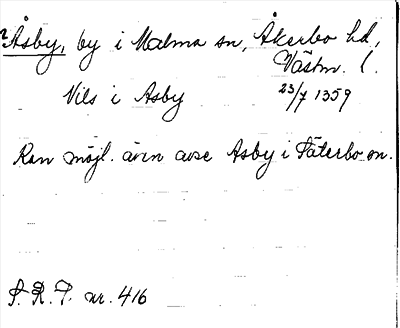 ? Åsby, by i Malma sn, Åkerbo hd,
Västm. l.
Nils i Asby 23/7 1359
Kan möjl. även avse Asby i Säterbo sn.
S. R. P. nr. 416